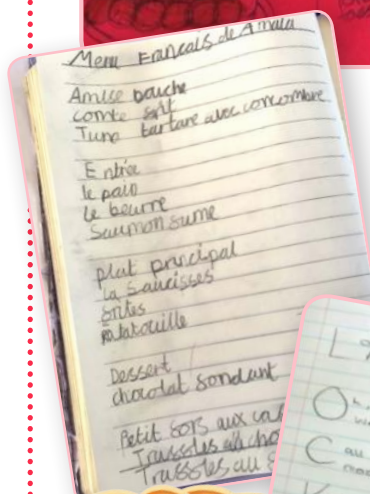 Menu Francais de Amaia
Amise bouche
comte
Tuna tartare avec concombre
Entrée
le pain
Le beurre
Saumon sume
plat principal
la Saucisses
frites
Ratatouille
Dessert
chocolat fondant
Petit fors aux
Trussles au cho
Trussles au